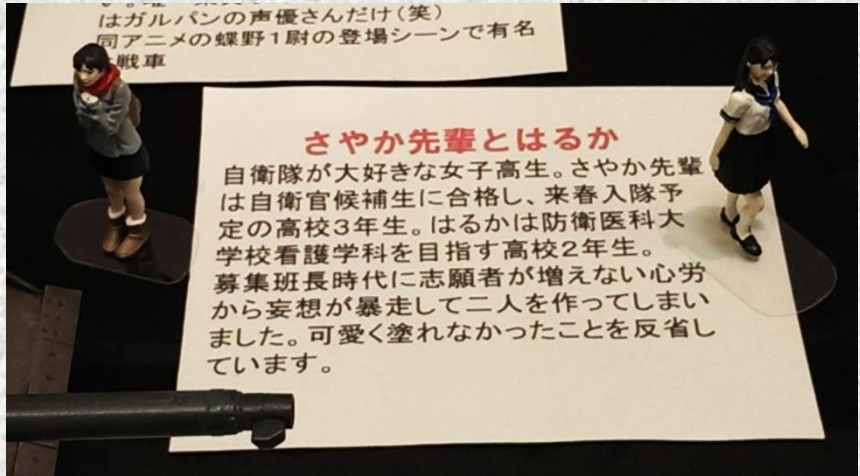 はガルパンの声優さんだけ(笑)
同アニメの蝶野1尉の登場シーンで有名
戦車
さやか先輩とはるか
自衛隊が大好きな女子高生。さやか先輩
は自衛官候補生に合格し、来春入隊予
定の高校3年生。はるかは防衛医科大
学校看護学科を目指す高校2年生。
募集班長時代に志願者が増えない心労
から妄想が暴走して二人を作ってしまい
ました。可愛く塗れなかったことを反省し
ています。